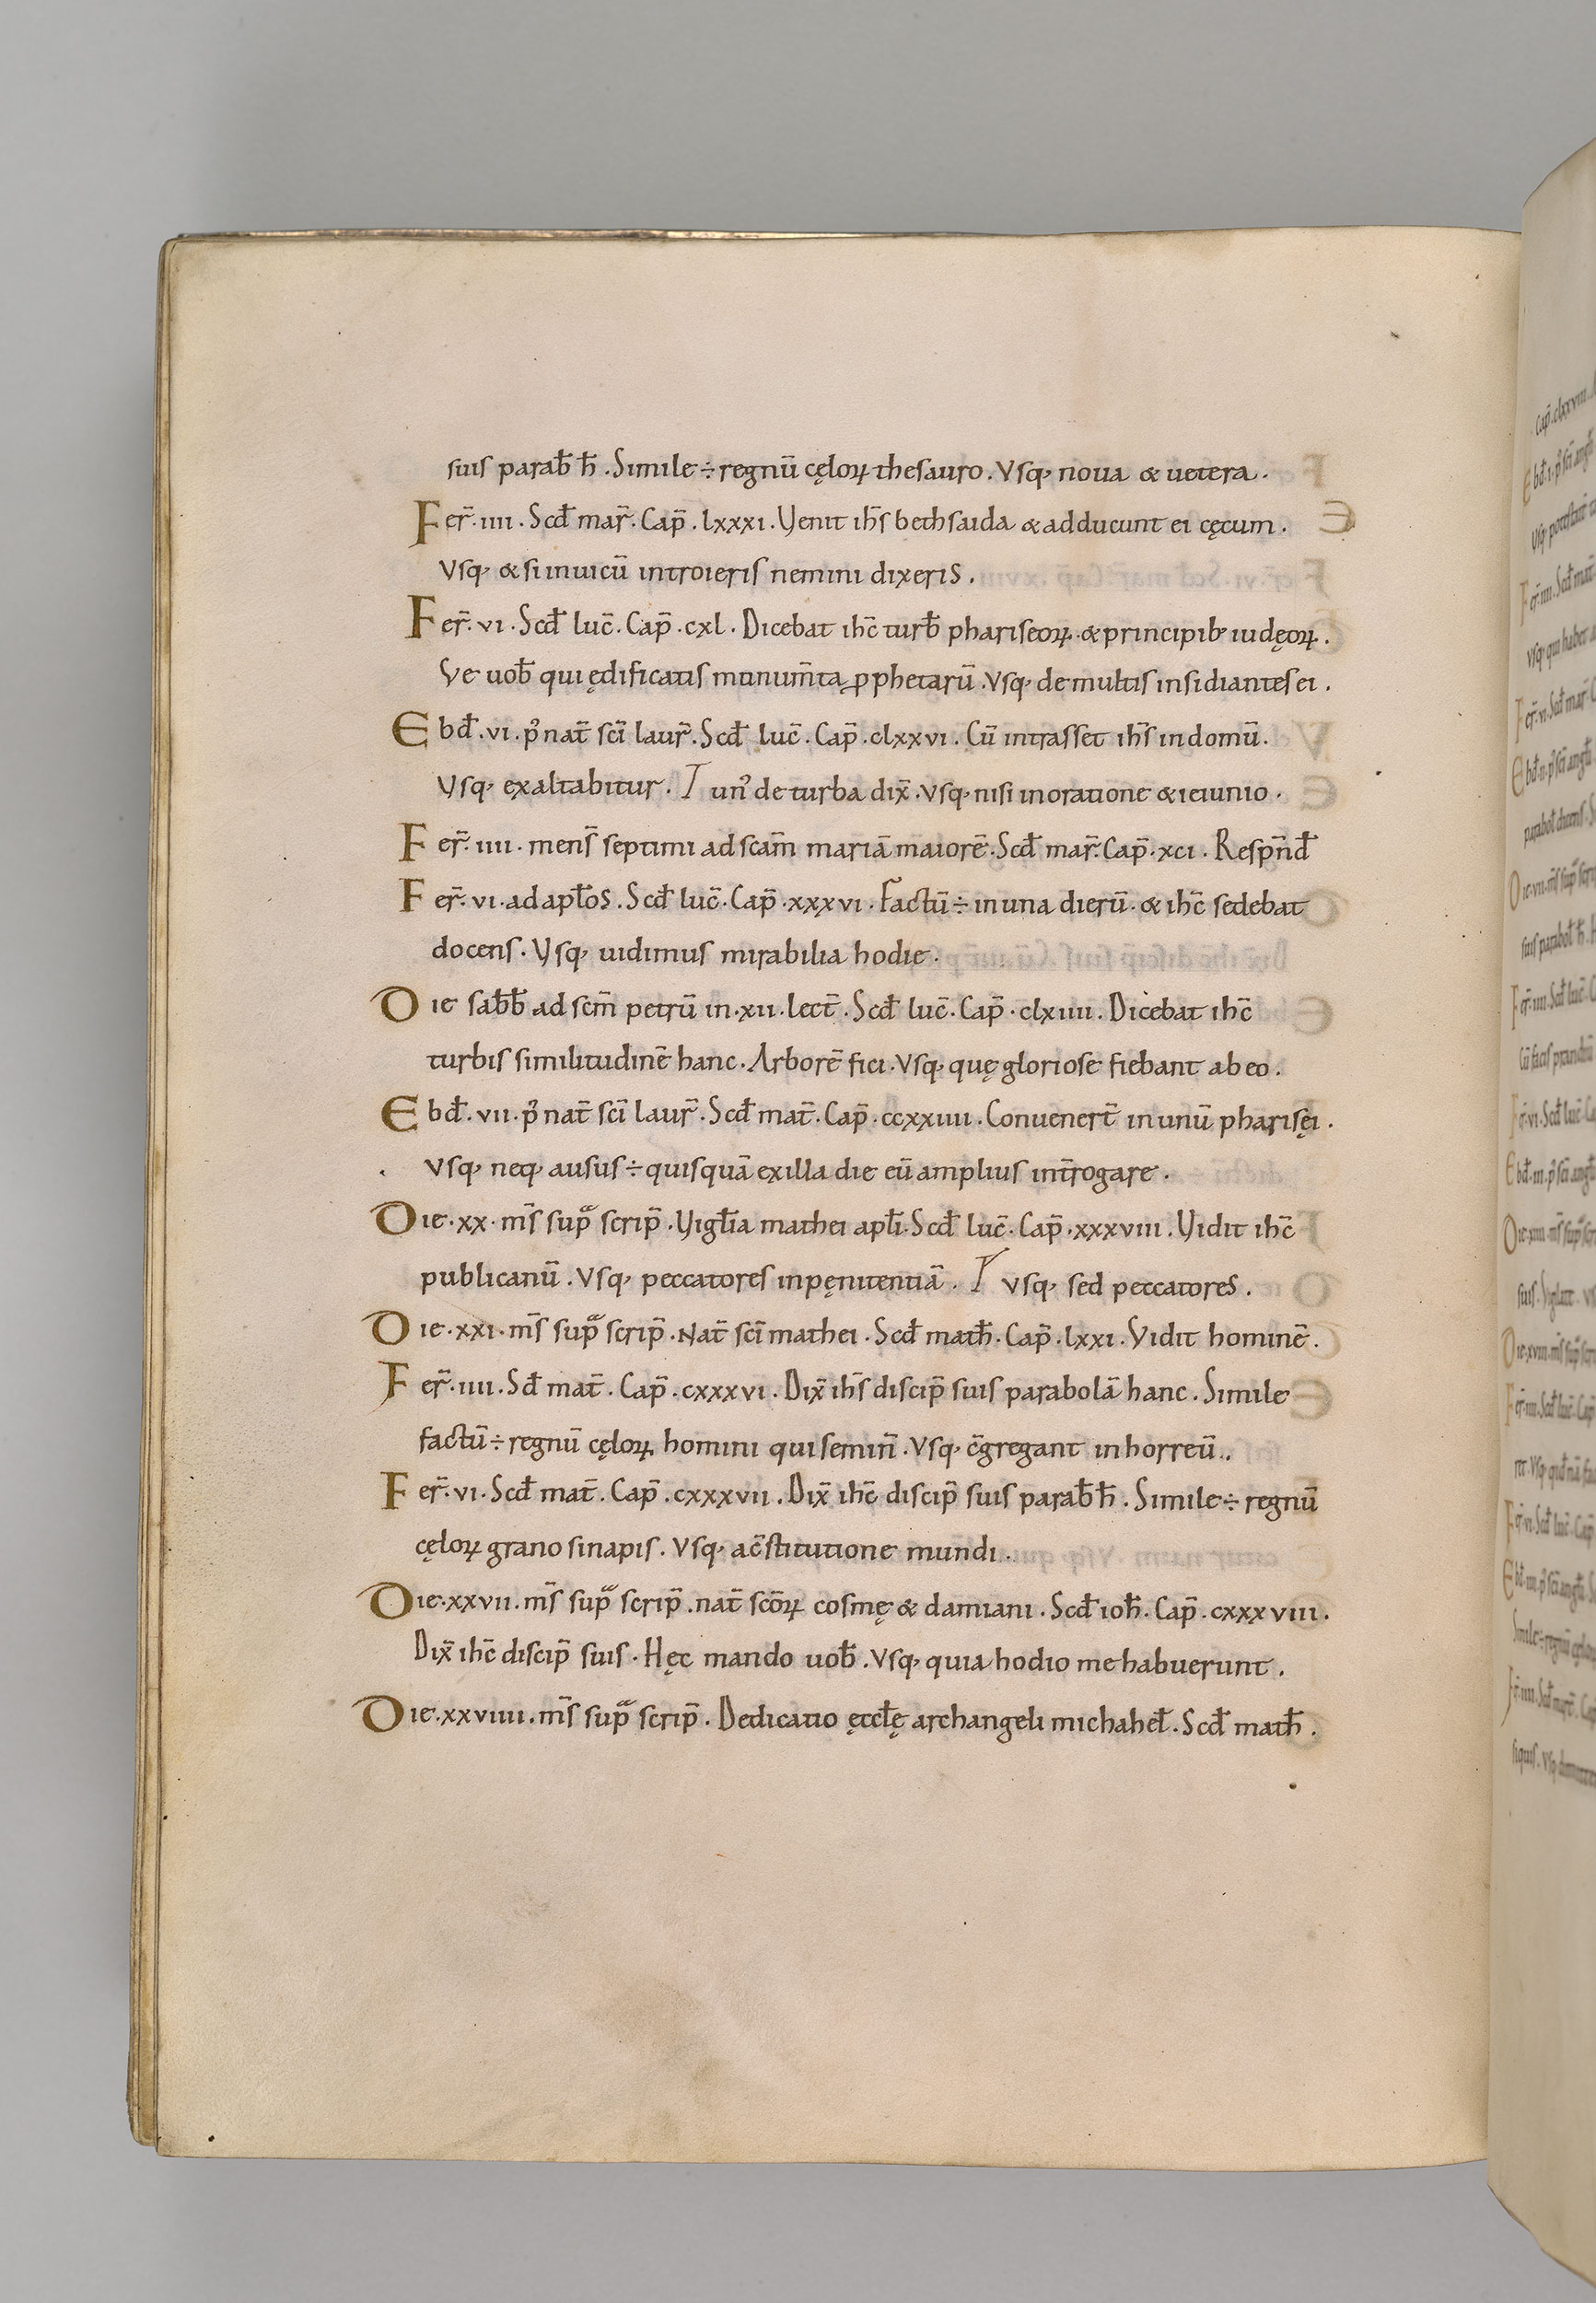 suis parab̄ h̄. Simile ÷ regnū cęloꝝ thesauro. Vsq; noua & uetera.
Fer̄. IIII. Scd̄ mar̄. Cap̄. lxxxi. Venit ih̄s bethsaida & adducunt ei cęcum.
Vsq; & si in uicū introieris nemini dixeris.
Fer̄. vi. Scd̄ luc̄. Cap̄. cxl. Dicebat ih̄c turb̄ phariseoꝝ. & principib; iudęoꝝ.
Ve uob̄ qui ędificatis munum̄ta ꝓphetarū. Vsq; de multis insidiantes ei.
Ebd̄. vi. p᷒ nat̄ sc̄i laur̄. Scd̄ luc̄. Cap̄. clxxvi. Cū intrasset ih̄s in domū.
Vsq; exaltabitur. I un᷒ de turba dix̄. Vsq; nisi in oratione & ieiunio.
Fer̄. IIII. mens̄ septimi ad scam̄ mariā maiorē. Scd̄ mar̄. Cap̄. xci. Respn̄d̄
Fer̄. vi. ad apl̄os. Scd̄ luc̄. Cap̄. xxxvi. Factū ÷ in una dierū. & ih̄c sedebat
docens. Vsq; uidimus mirabilia hodie.
Die sab̄b̄ ad scm̄ petrū in. xii. lect̄. Scd̄ luc̄. Cap̄. clxiiii. Dicebat ih̄c
turbis similitudinē hanc. Arborē fici. Vsq; quę gloriose fiebant ab eo.
Ebd̄. vii. p᷒ nat̄ sc̄i laur̄. Scd̄ mat̄. Cap̄. ccxxiiii. Conuenert̄ in unū pharisęi.
Vsq; neq; ausus ÷ quisquā ex illa die eū amplius int̄rogare.
Die. xx. m̄s supᷓ scrip̄. Vigl̄ia mathei apl̄i. Scd̄ luc̄. Cap̄. xxxviii. Vidit ih̄c
publicanū. Vsq; peccatores in pęnitentiā. I Vsq; sed peccatores.
Die. xxi. m̄s supᷓ scrip̄. Nat̄ sc̄i mathei. Scd̄ math̄. Cap̄. lxxi. Vidit hominē.
Fer̄. IIII. Sd̄ mat̄. Cap̄. cxxxvi. Dix̄ ih̄s discip̄ suis parabolā hanc. Simile
factū ÷ regnū cęloꝝ homini qui semin̄. Vsq; c̄gregant in horreū..
Fer̄. vi. Scd̄ mat̄. Cap̄. cxxxvii. Dix̄ ih̄c discip̄ suis parab̄ h̄. Simile ÷ regnū
cęloꝝ grano sinapis. Vsq; a c̄stitutione mundi.
Die. xxvii. m̄s supᷓ scrip̄. nat̄ scōꝝ cosmę & damiani. Scd̄ ioh̄. Cap̄. cxxxviii.
Dix̄ ih̄c discip̄ suis. Hęc mando uob̄. Vsq; quia hodio me habuerunt.
Die. xxviiii. m̄s supᷓ scrip̄. Dedicatio ęccl̄ę archangeli michahel̄. Scd̄ math̄.